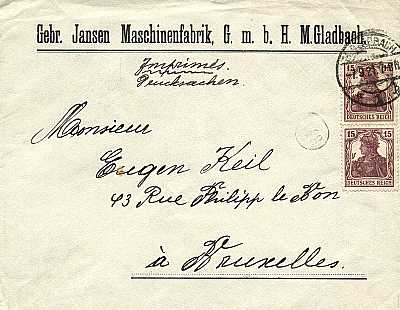 Gebr. Jansen Maschinenfabrik, G. m. b. H. M.Gladbach
Imprimés.
Drucksachen.
15
DEUTSCHES REICH
15 15
DEUTSCHES REICH
Monsieur
Eugen Keil
43 Rue Philipp le Bon
à Bruxelles.